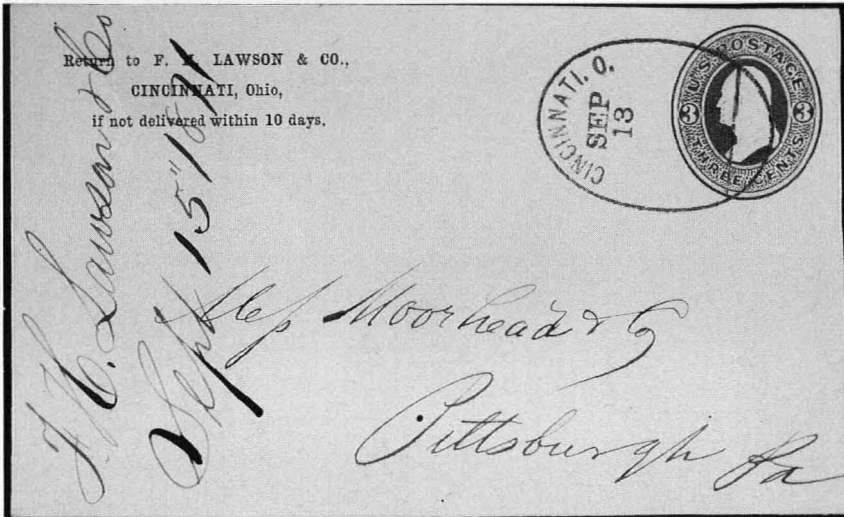 Return to F. H. LAWSON & CO.,
CINCINNATI, Ohio,
if not delivered within 10 days.
CINCINNATI. O.
SEP
13
U.S. POSTAGE
3 3
THREE CENTS
F. H. Lawson & Co
Sept 15" 1871
Mess Moorhead & Co
Pittsburgh Pa